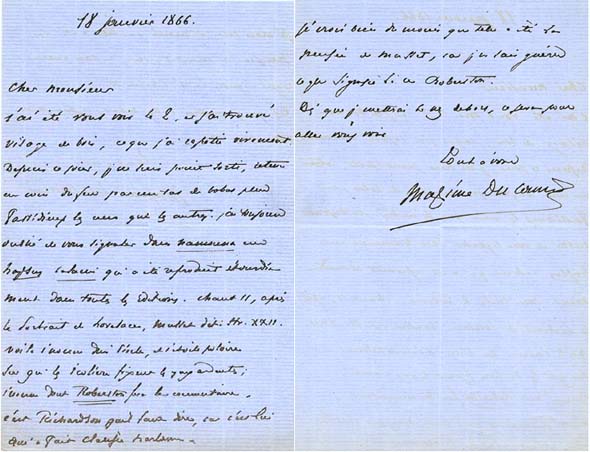 18 janvier 1866.
Cher monsieur
j'ai été vous voir le 2, et j'ai trouvé
visage de bois, ce que j'ai regretté vivement.
Depuis ce jour, je ne suis point sorti, retenu
au coin du feu par un tas de bobos plus
fastidieux les uns que les autres. j'ai toujours
oublié de vous signaler dans namouna un
lapsus calami qui a été reproduit
ment dans toutes les éditions. chant II, après
le portrait de Lovelace, Musset dit: Str. XXII.
voilà l'homme du siècle, et l'étoile polaire
Sur qui les écoliers fixent les yeux ardents;
l'homme dont Robertson fera le commentaire.
c'est Richardson qu'il faut dire, car c'est lui
qui a fait Clarisse Harlowe.
je crois bien du moins que telle a été la
pensée de Musset, car je ne sais guère
ce que signifie ici ce Robertson.
Dès que je mettrai le nez dehors, ce sera pour
aller vous voir
Tout à vous
Maxime Du Camp